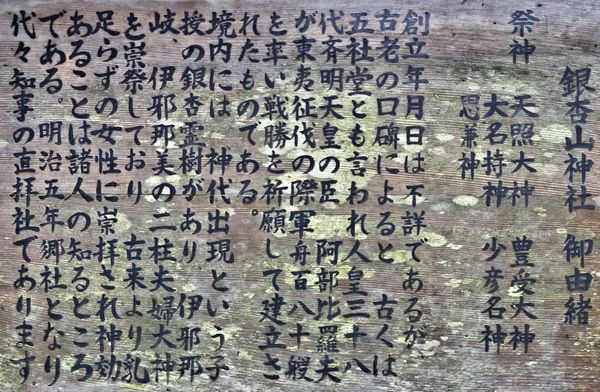 銀杏山神社 御由緒
祭神 天照大神 豊受大神
大名持神 少彦名神
思兼神
創立年月日は不詳であるが
古老の口碑によると 古くは
五社堂とも言われ人皇三十八
代斉明天皇の臣 阿部比羅夫
が東夷征伐の際軍舟百八十艘
を率い戦勝を祈願して建立さ
れたものである。
境内には 神代出現という子
授の銀杏霊樹があり 伊邪那
岐、伊邪那美の二柱夫婦大神
を崇祭しており 古来より乳
足らずの女性に崇拝され神効
あることは諸人の知るところ
である。明治五年郷社となり
代々知事の直拝社であります